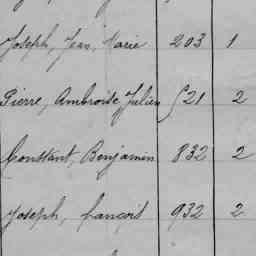 Joseph, Jean, Marie 203 1
Pierre, Ambroise Julien 521 2
Constant, Benjamin 832 2
Joseph, francois 932 2